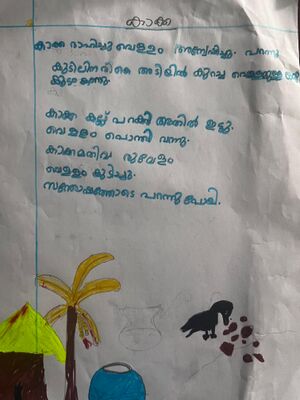 കാക്ക
കാക്ക ദാഹിച്ചു വെള്ളം അന്വേഷിച്ചു. പറന്നു
കുടിലിനരികെ അടിയിൽ കുറച്ച വെള്ളമുള്ള
കണ്ടു.
കാക്ക കല്ല് പറക്കി അതിൽ ഇട്ടു.
വെള്ളം പൊന്തി വന്നു.
കാക്ക
വെള്ളം കുടിച്ചു.
സന്തോഷത്തോടെ പറന്നു പോയി.